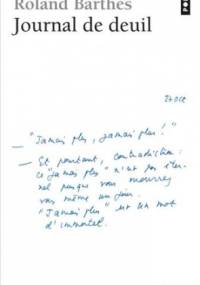 Roland Barthes
Journal de deuil
27 oct
— "Jamais plus, jamais plus !"
— Et pourtant, contradiction :
ce "jamais plus" n'est pas éter-
nel puisque vous mourrez
vous-même un jour.
"Jamais plus" est un mot
d'immortel.